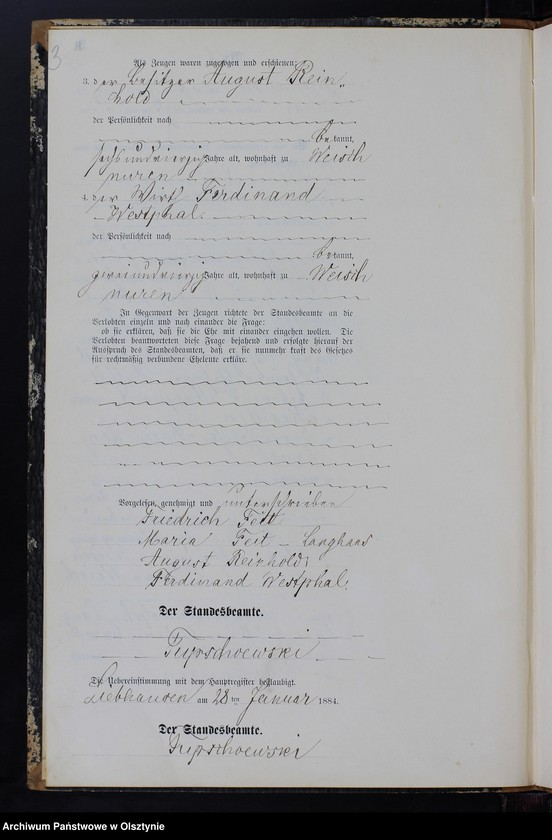 3
Als Zeugen waren zugezogen und erschienen:
3. der Besitzer August Rein-
hold
der Persönlichkeit nach
bekannt,
sechsundvierzig Jahre alt, wohnhaft zu Weisch
nuren
4. der Wirt Ferdinand
Westphal
der Persönlichkeit nach
bekannt,
zweiundvierzig Jahre alt, wohnhaft zu Weisch
nuren
In Gegenwart der Zeugen richtete der Standesbeamte an die
Verlobten einzeln und nach einander die Frage:
ob sie erklären, daß sie die Ehe mit einander eingehen wollen. Die
Verlobten beantworteten diese Frage bejahend und erfolgte hierauf der
Ausspruch des Standesbeamten, daß er sie nunmehr kraft des Gesetzes
für rechtmäßig verbundene Eheleute erkläre.
Vorgelesen, genehmigt und unterschrieben
Friedrich Feit
Maria Feit – Langhans
August Reinhold
Ferdinand Westphal.
Der Standesbeamte.
Die Uebereinstimmung mit dem Hauptregister beglaubigt.
am 28ten Januar 1884.
Der Standesbeamte.
Archiwum Państwowe w Olsztynie